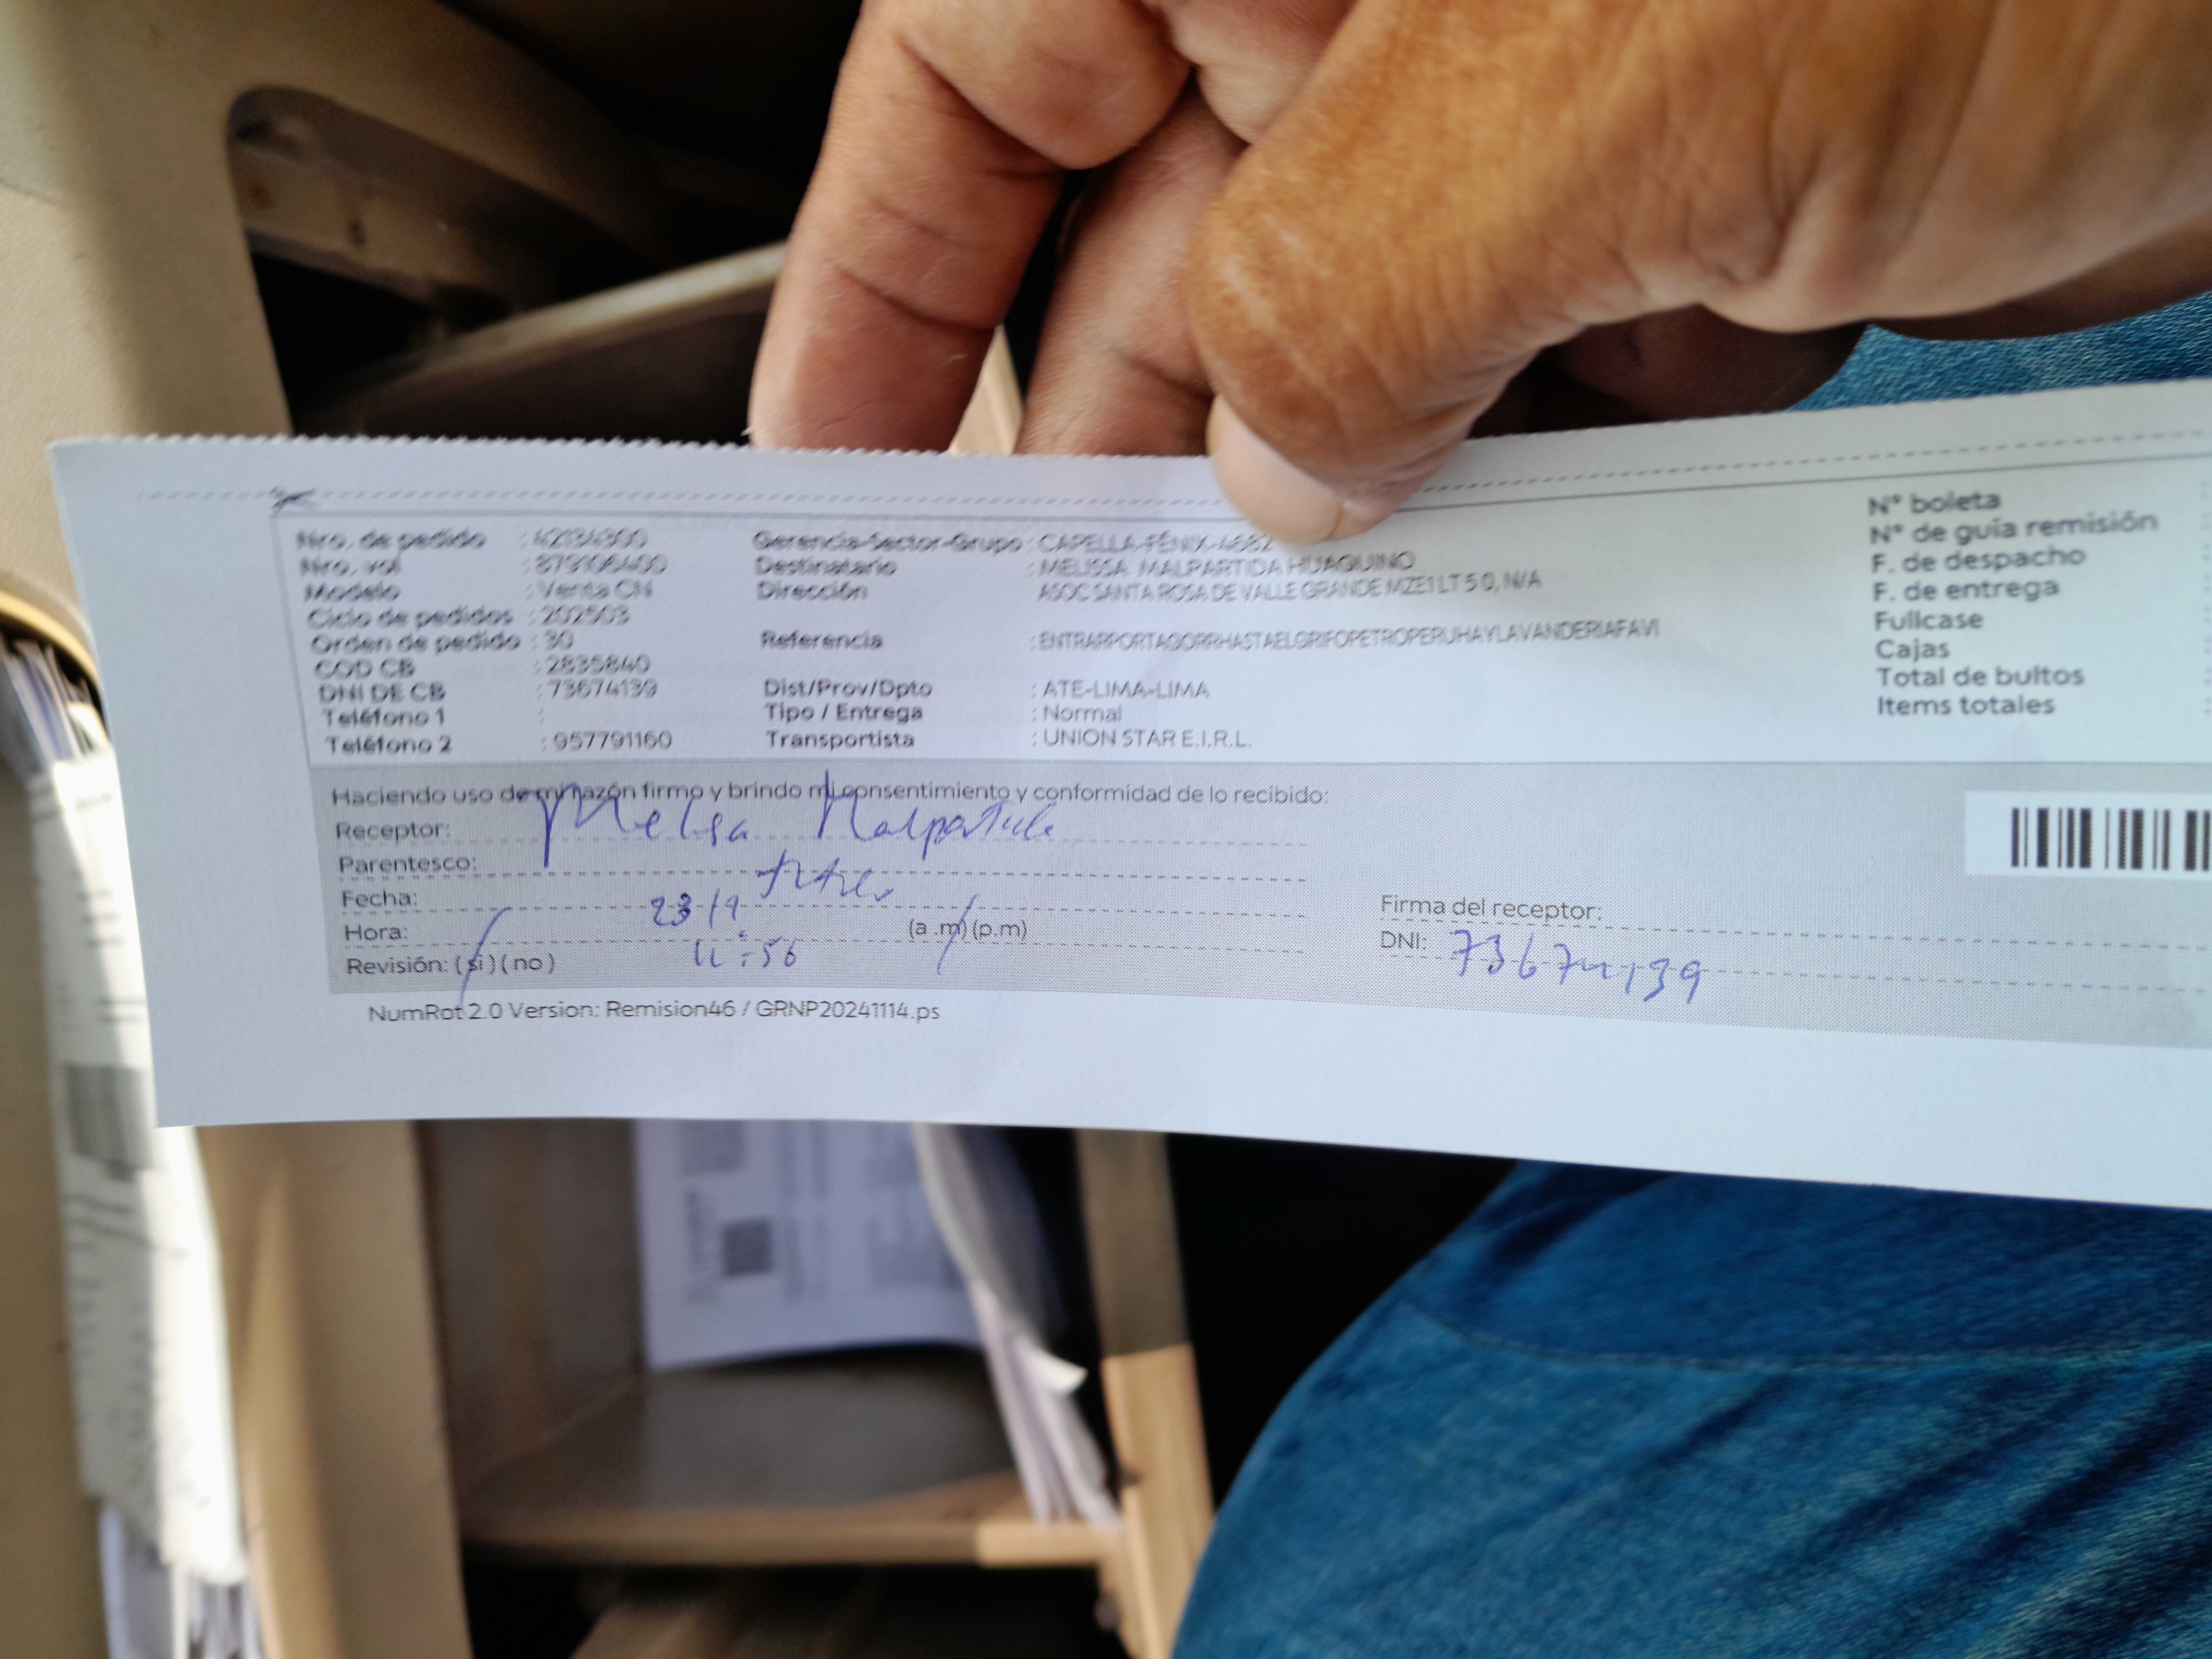 Nro. de pedido : 42314300 Gerencia-Sector-Grupo : CAPELLA-FÉNIX-4682 N° boleta
Nro. vol Destinatario : MELISSA MALPARTIDA HUAQUINO N° de guía remisión
Modelo : Venta CN Dirección ASOC SANTA ROSA DE VALLE GRANDE MZE1 LT 5 0, N/A F. de despacho
Ciclo de pedidos : 202503 F. de entrega
Orden de pedido : 30 Referencia : ENTRARPORTAGORRHASTAELGRIFOPETROPERUHAYLAVANDERIAFAVI Fullcase
COD CB : 2835840 Cajas
DNI DE CB : 73674139 Dist/Prov/Dpto : ATE-LIMA-LIMA Total de bultos
Teléfono 1 : Tipo / Entrega : Normal Items totales
Teléfono 2 : 957791160 Transportista : UNION STAR E.I.R.L.
Haciendo uso de mi razón firmo y brindo mi consentimiento y conformidad de lo recibido:
Receptor: Melisa Malpartida
Parentesco:
Fecha: 23/1 Firma del receptor:
Hora: 11:56 (a .m) (p.m) DNI: 73674139
Revisión: ( si ) ( no )
NumRot 2.0 Version: Remision46 / GRNP20241114.ps